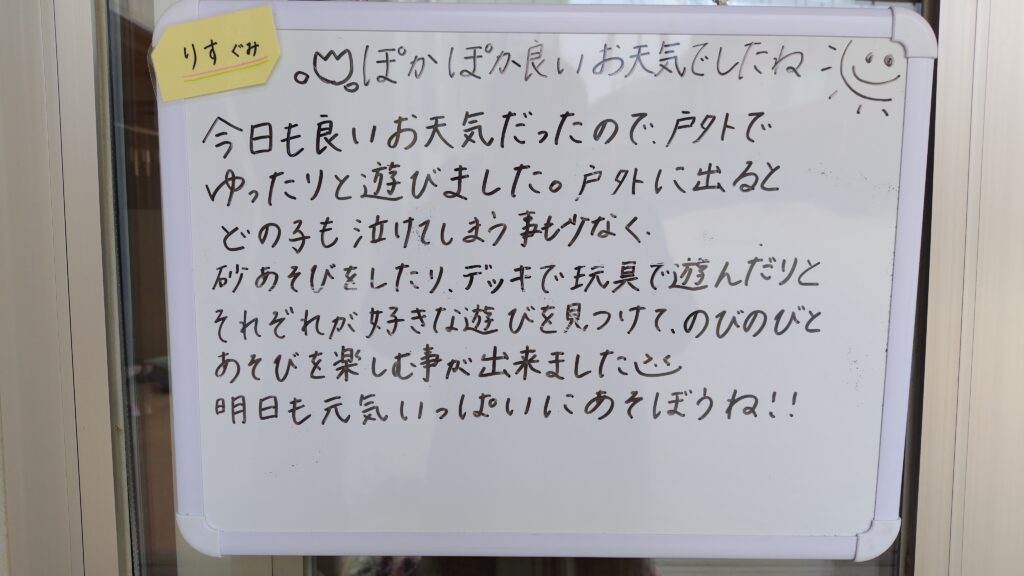 りすぐみ
ぽかぽか良いお天気でしたね
今日も良いお天気だったので、戸外で
ゆったりと遊びました。戸外に出ると
どの子も泣けてしまう事も少なく、
砂あそびをしたり、デッキで玩具で遊んだりと
それぞれが好きな遊びを見つけて、のびのびと
あそびを楽しむ事が出来ました
明日も元気いっぱいにあそぼうね!!